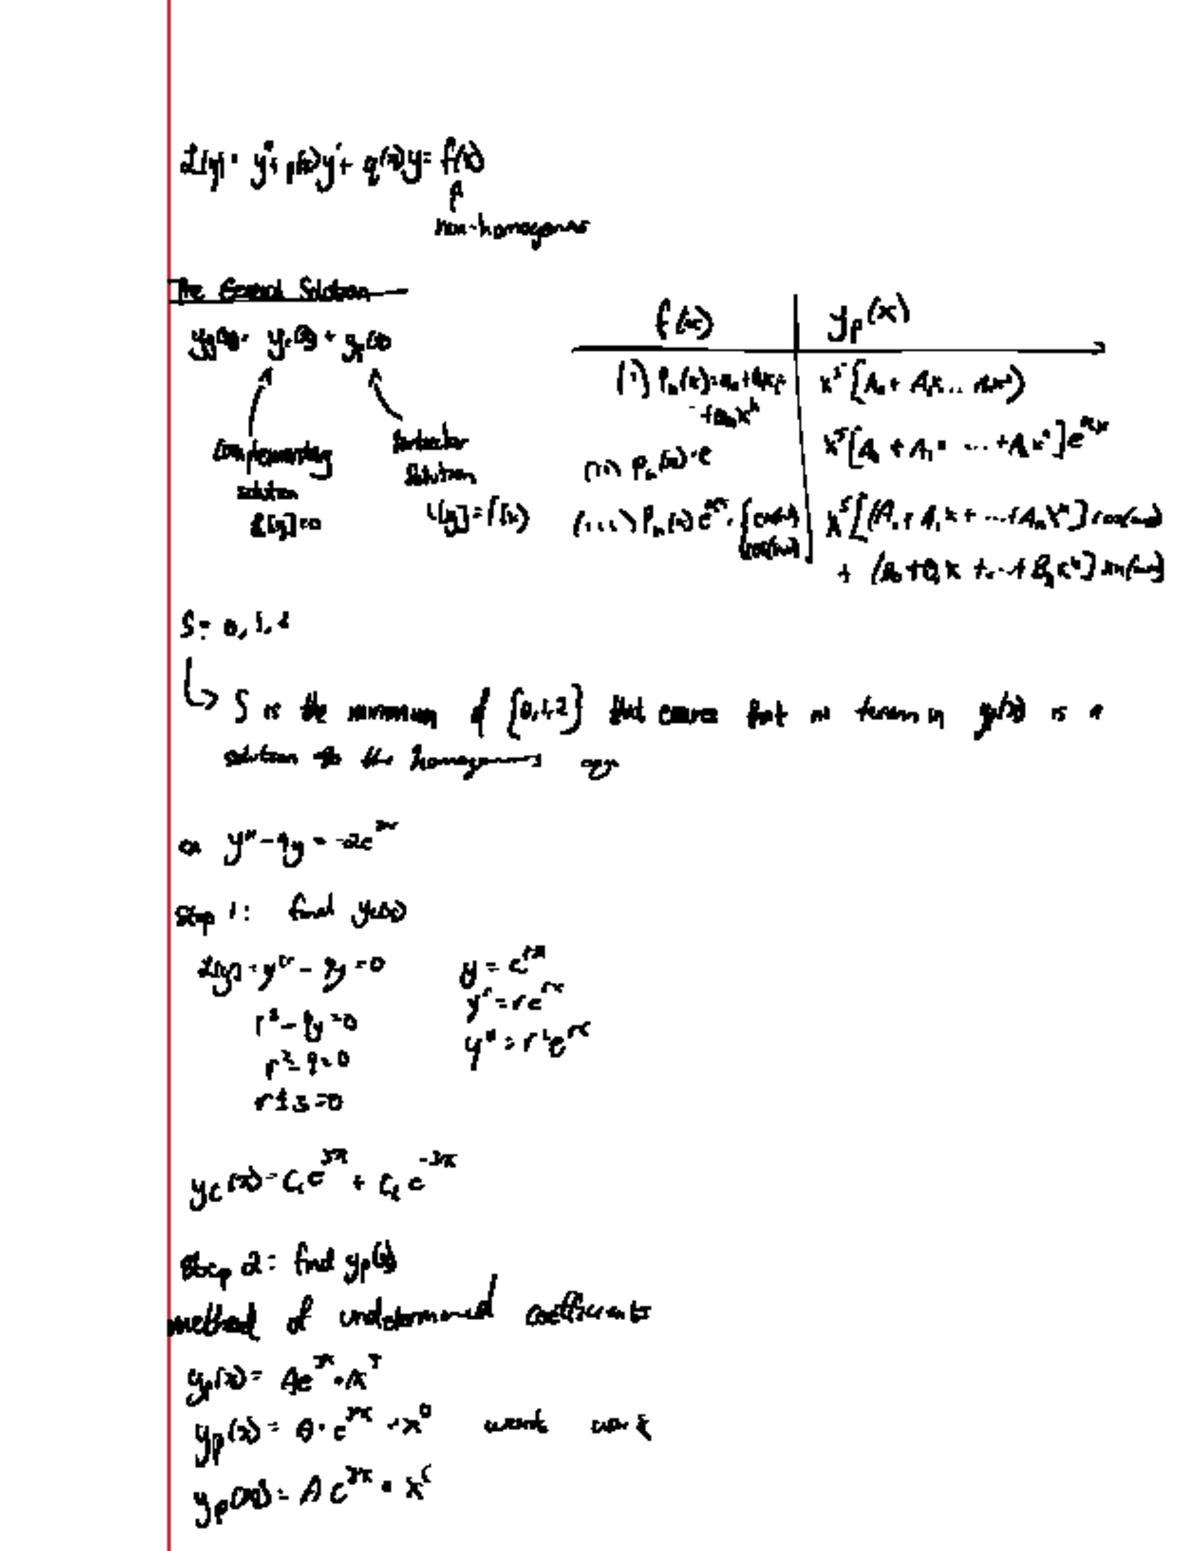 L[y] = y'' + p(x)y' + q(x)y = f(x)
non-homogenous
The General Solution
yg(x) = yc(x) + yp(x)
complementary solution L[y]=0
Particular Solution L[y] = f(x)
f(x) yp(x)
(i) Pn(x) = a0 + a1x + ... + anx^n x^s [A0 + A1x ... Anx^n]
(ii) Pn(x) · e x^s [A0 + A1 ... + Anx^n] e^αx
(iii) Pn(x) e^αx · x^s [(A0 + A1x + ... + Anx^n] cos(ωx)
+ (B0 + B1x + ... + Bnx^n] sin(ωx)
S = 0, 1, 2
S is the minimum of {0,1,2} that that no term in yp(x) is a
solution to the homogenous eqn
ex y'' - 9y = -2e^3x
Step 1: find yc(x)
L[y] = y'' - 9y = 0 y = e^rx
r² - 9y = 0 y' = re^rx
r² - 9 = 0 y'' = r²e^rx
r ± 3 = 0
yc(x) = C1e^3x + C2e^-3x
Step 2: find yp(x)
method of undetermined coefficients
yp(x) = Ae^3x · x^s
yp(x) = A · e^3x · x^0 wont work
yp(x) = Ae^3x · x^1